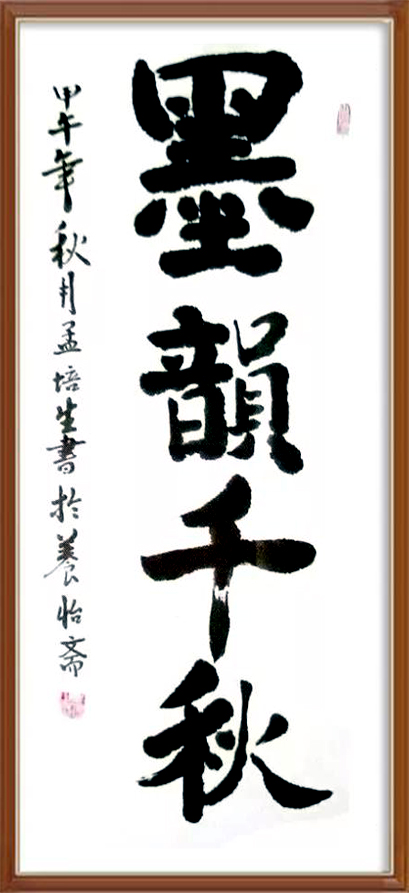 墨韻千秋
甲午年秋月孟培生書於養怡斋